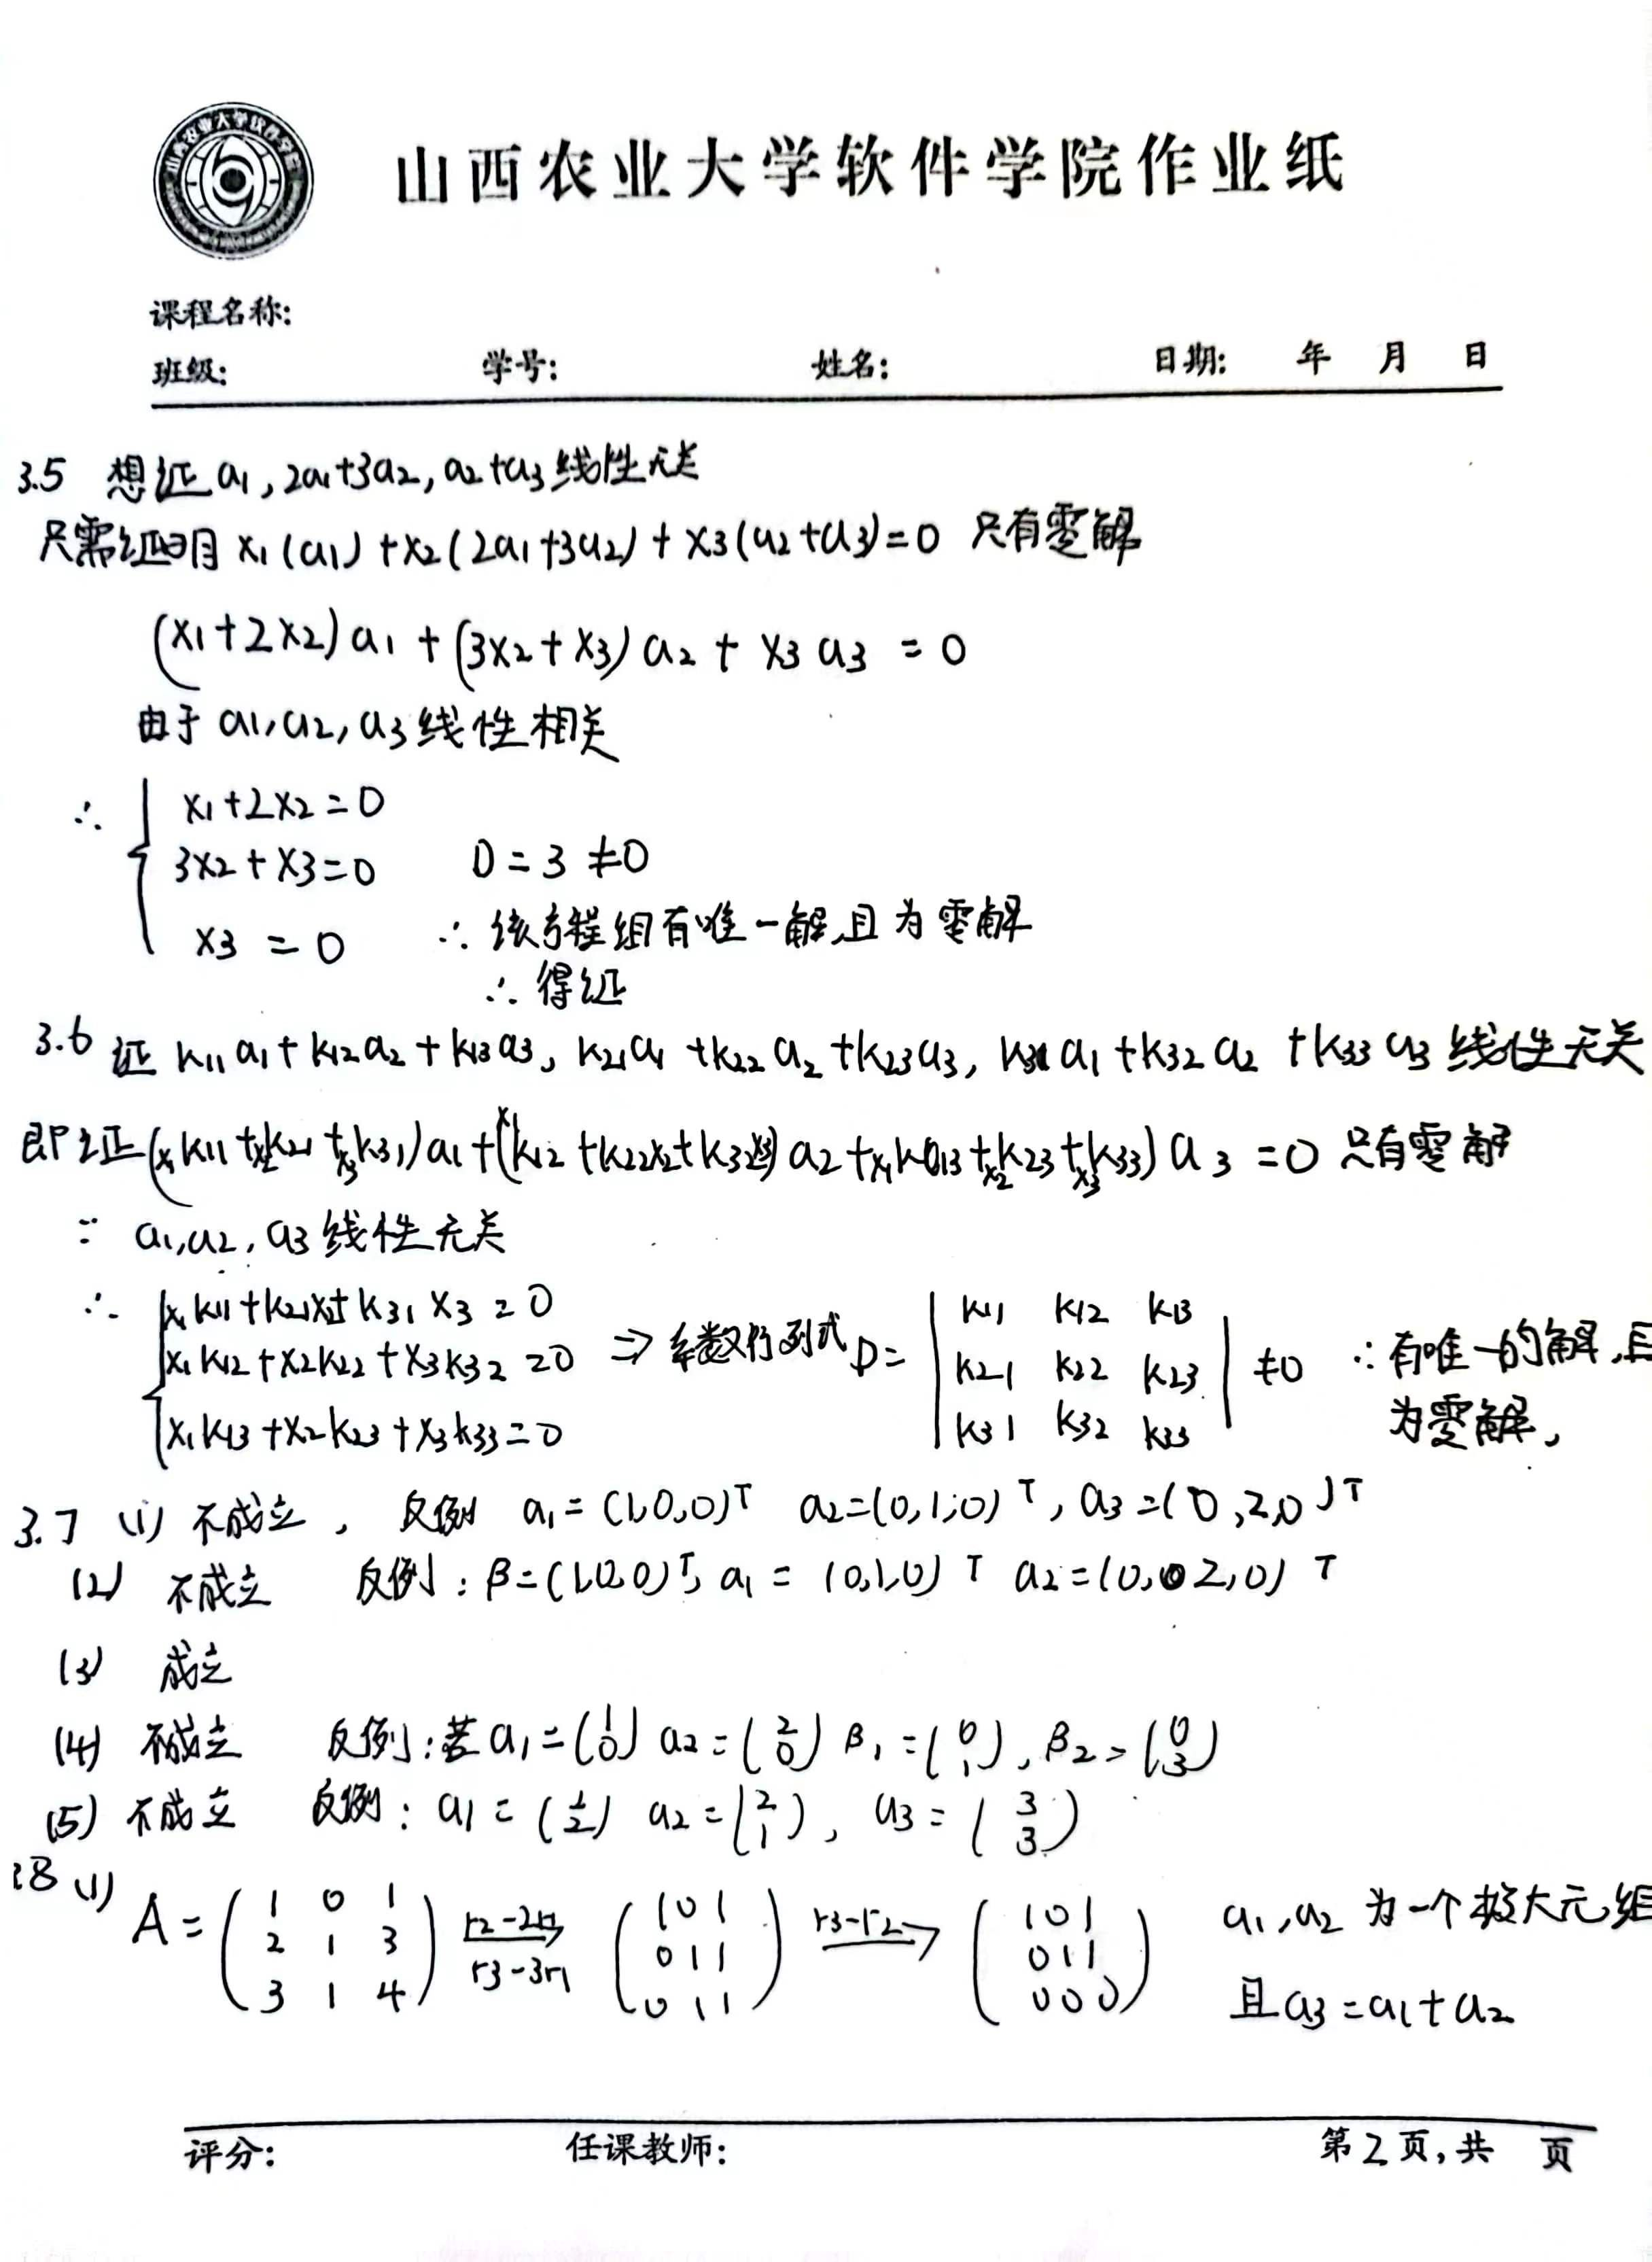 山西农业大学软件学院作业纸
课程名称:
班级: 学号: 姓名: 日期: 年 月 日
3.5 想证 a1, 2a1+3a2, a2+a3 线性无关
只需证明 x1(a1)+x2(2a1+3a2)+x3(a2+a3)=0 只有零解
(x1+2x2)a1+(3x2+x3)a2+x3a3=0
由于 a1,a2,a3 线性相关
∴ { x1+2x2=0
3x2+x3=0 D=3≠0
x3=0 ∴ 该方程组有唯一解,且为零解
∴ 得证
3.6 证 k11a1+k12a2+k13a3, k21a1+k22a2+k23a3, k31a1+k32a2+k33a3 线性无关
即证(x1k11+x2k21+x3k31)a1+(x1k12+k22x2+k32x3)a2+x1k13+x2k23+x3k33)a3=0 只有零解
∵ a1,a2,a3 线性无关
∴ { x1k11+k21x2+k31x3=0
x1k12+x2k22+x3k32=0 ⇒ 系数行列式 D= | k11 k12 k13
k21 k22 k23
k31 k32 k33 | ≠0 ∴ 有唯一的解,且
x1k13+x2k23+x3k33=0 为零解,
3.7 (1) 不成立, 反例 a1=(1,0,0)T a2=(0,1,0)T, a3=(0,2,0)T
(2) 不成立 反例: β=(1,0,0)T, a1=(0,1,0)T a2=(0,2,0)T
(3) 成立
(4) 不成立 反例:若 a1=(1 0) a2=(2 0) β1=(0 1), β2=(0 3)
(5) 不成立 反例: a1=(1 2) a2=(2 1), a3=(3 3)
3.8 (1) A= (1 0 1
2 1 3
3 1 4) r2-2r1 r3-3r1 → (1 0 1
0 1 1
0 1 1) r3-r2 → (1 0 1
0 1 1
0 0 0) a1,a2 为一个极大元组
且 a3=a1+a2
评分: 任课教师: 第2页,共 页